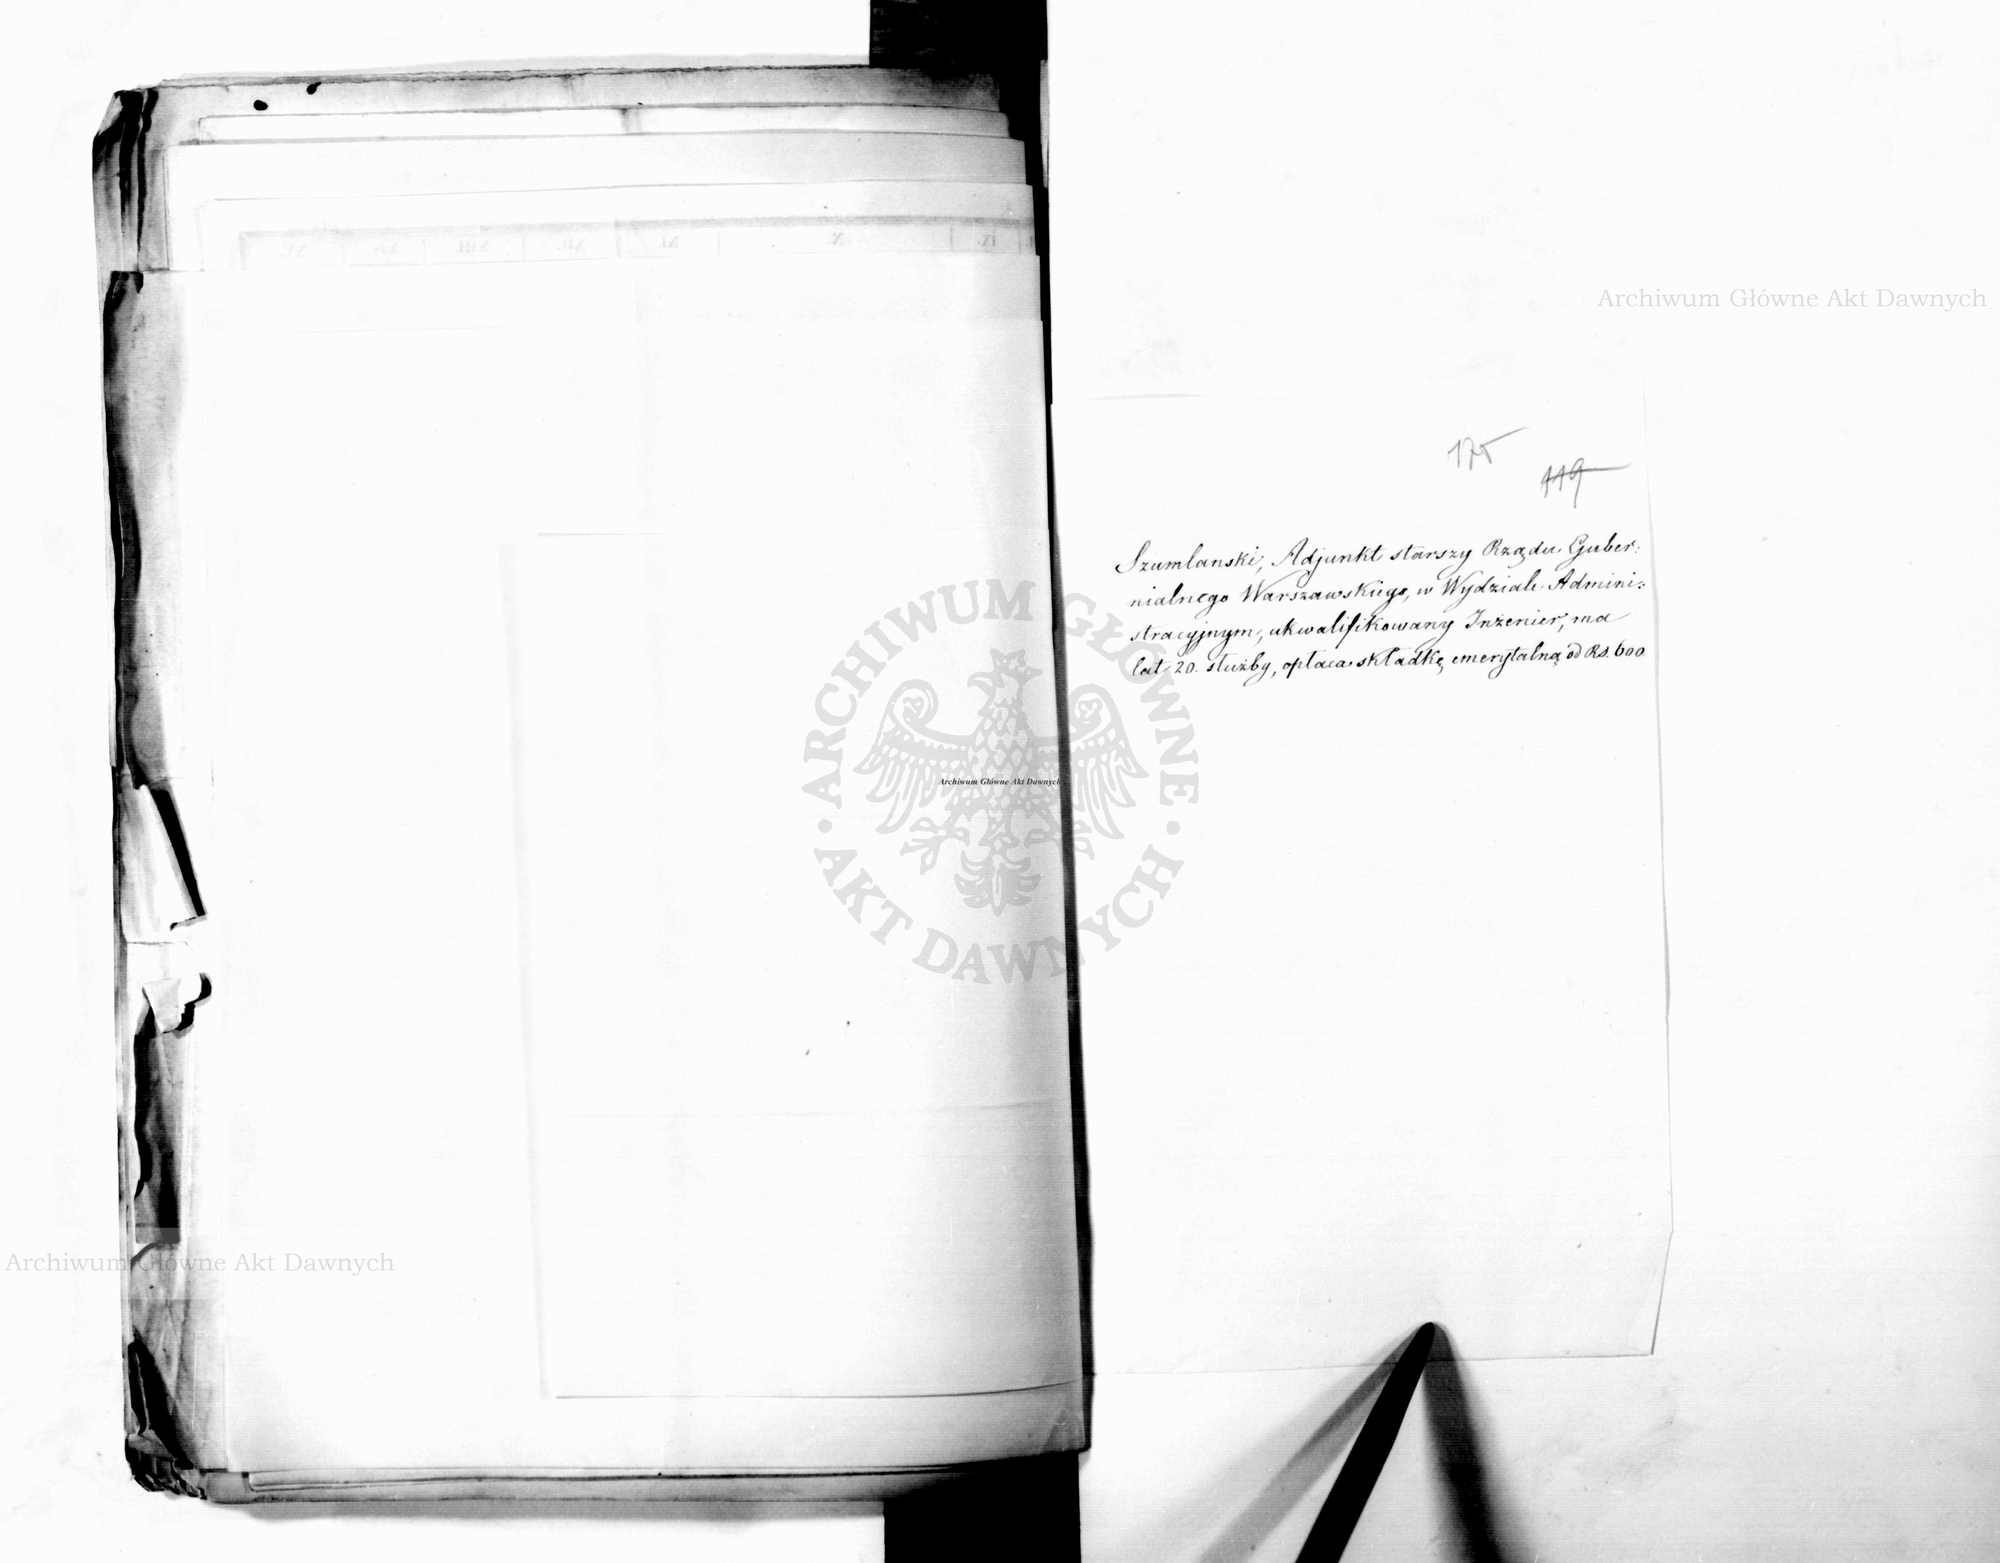 XV. XIV. XIII. XII. XI. X. IX.
Archiwum Główne Akt Dawnych
175
119
Szumlanski, Adjunkt starszy Rządu Guber:
nialnego Warszawskiego, w Wydziale Admini:
stracyjnym, ukwalifikowany Inżenier, ma
lat 20. służby, opłaca składkę emerytalną od Rs. 600
ARCHIWUM GŁÓWNE
AKT DAWNYCH
Archiwum Główne Akt Dawnych
Archiwum Główne Akt Dawnych